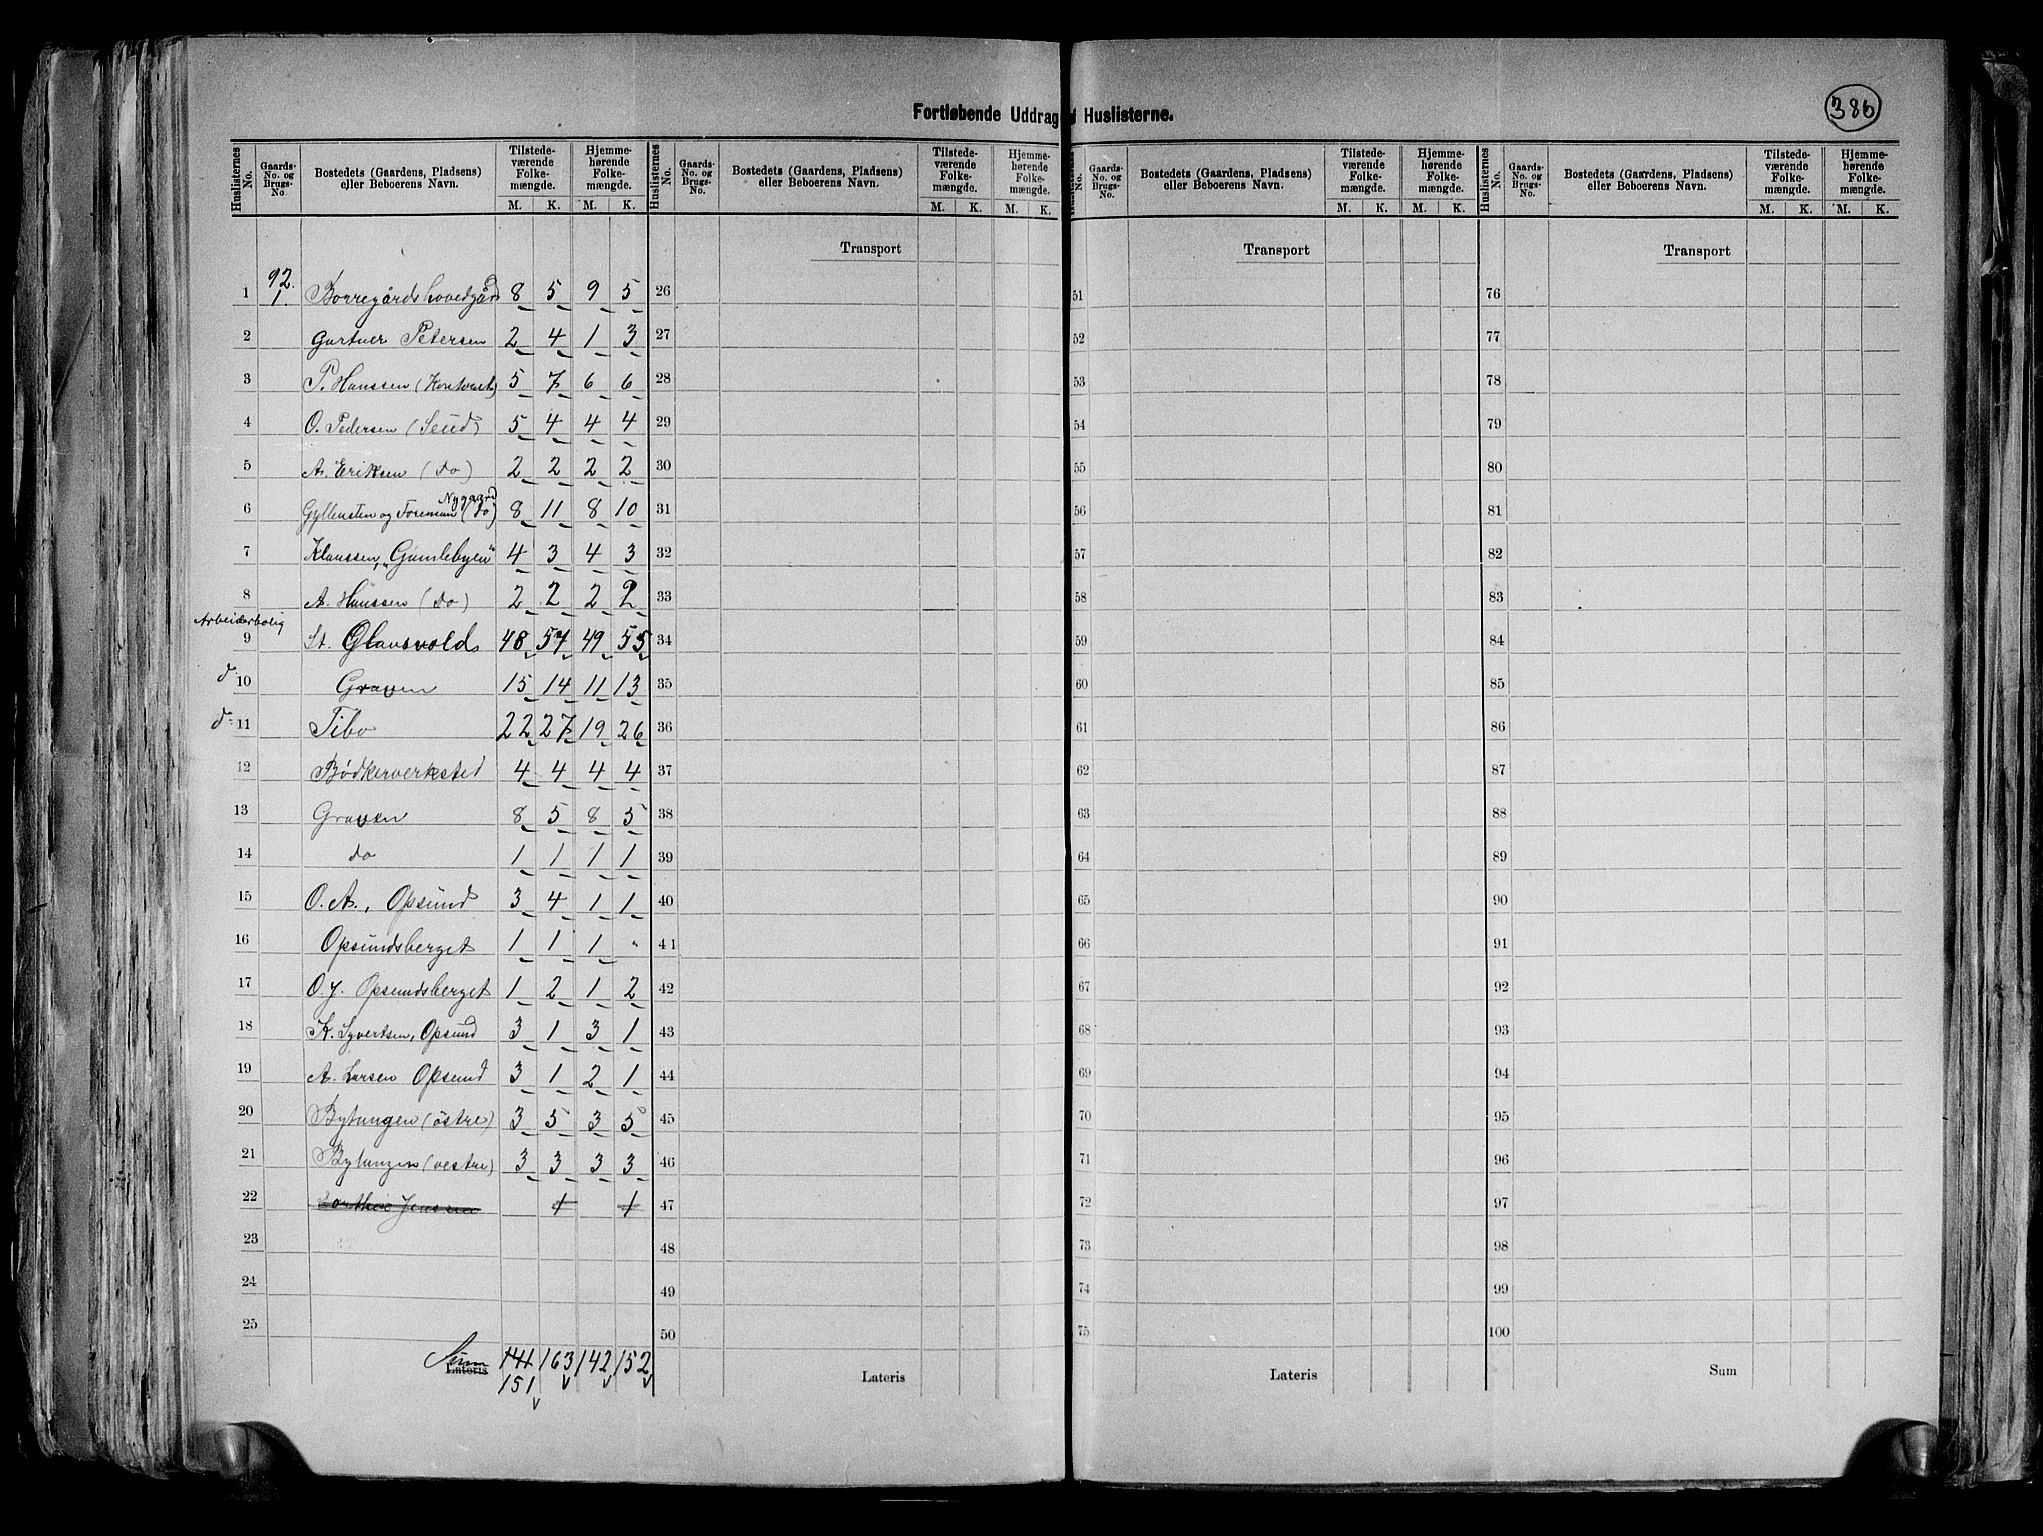 386
Fortløbende Uddrag af Huslisterne.
Huslisternes No. Gaards-No. og Brugs-No Bostedets (Gaardens, Pladsens) eller Beboerens Navn. Tilstedeværende Folkemængde. M. K. Hjemmehørende Folkemængde. M. K.
Huslisternes No. Gaards-No. og Brugs-No. Bostedets (Gaardens, Pladsens) eller Beboerens Navn. Tilstedeværende Folkemængde. M. K. Hjemmehørende Folkemængde. M. K.
Huslisternes No. Gaards-No. og Brugs-No. Bostedets (Gaardens, Pladsens) eller Beboerens Navn. Tilstedeværende Folkemængde. M. K. Hjemmehørende Folkemængde. M. K.
Huslisternes No. Gaards-No. og Brugs-No. Bostedets (Gaardens, Pladsens) eller Beboerens Navn. Tilstedeværende Folkemængde. M. K. Hjemmehørende Folkemængde. M. K.
Transport Transport Transport
92.
1 1. Borregårds hovedgård 8 5 9 5 26 51 76
2 Gartner Petersen 2 4 1 3 27 52 77
3 P. Hanssen (Kontoret) 5 7 6 6 28 53 78
4 O. Pedersen 5 4 4 4 29 54 79
5 A. Eriksen (do) 2 2 2 2 30 55 80
Nygaard
6 Gyllensten og Foreman (do) 8 11 8 10 31 56 81
7 Klaussen, "Gamlebyen" 4 3 4 3 32 57 82
8 A. Hanssen (do) 2 2 2 2 33 58 83
Arbeiderbolig
9 St. Glansvold 48 57 49 55 34 59 84
d: 10 Graven 15 14 11 13 35 60 85
d: 11 Tibo 22 27 19 26 36 61 86
12 Bødkerverksted 4 4 4 4 37 62 87
13 Graven 8 5 8 5 38 63 88
14 do 1 1 1 1 39 64 89
15 O. A., Opsund 3 4 1 1 40 65 90
16 Opsundsberget 1 1 1 " 41 66 91
17 O. J. Opsundsberget 1 2 1 2 42 67 92
18 K. Syvertsen, Opsund 3 1 3 1 43 68 93
19 A. Larsen Opsund 3 1 2 1 44 69 94
20 Bytangen (østre) 3 5 3 5 45 70 95
21 Bytangen (vestre) 3 3 3 3 46 71 96
22 Jenssen 1 1 47 72 97
23 48 73 98
24 49 74 99
25 50 75 100
Sum 141 163 142 152
Lateris Lateris Lateris Sum
151